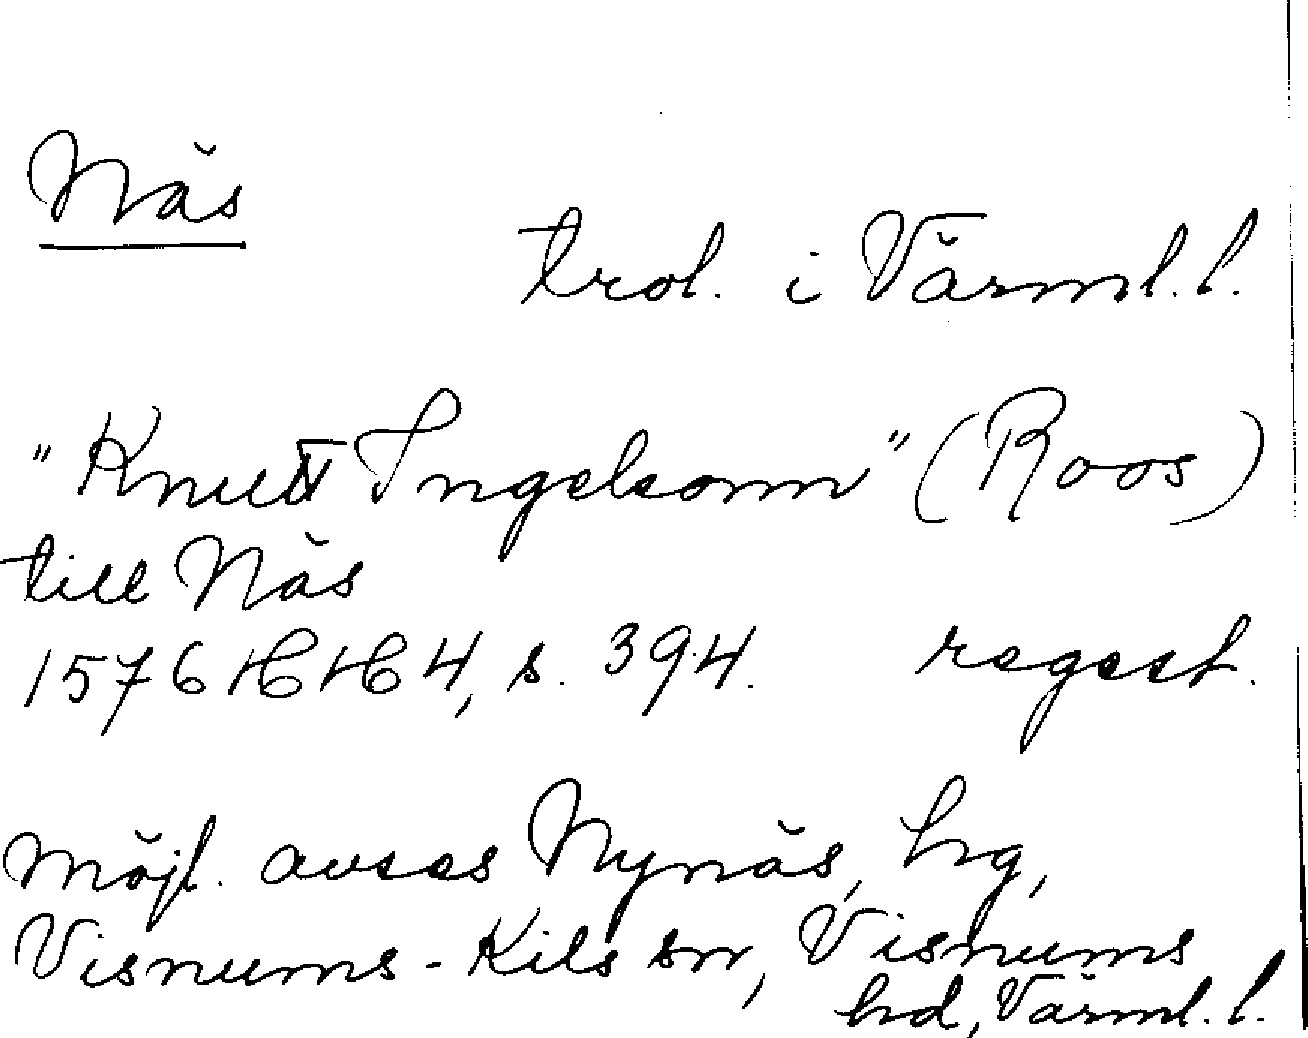 Näs
trol. i Värml. l.
"Knutt Ingelsonn" (Roos)
till Näs
1576 HH 4, s. 394. regest.
Möjl. avses Nynäs, hg,
Visnums-Kils sn, Visnums
hd, Värml. l.